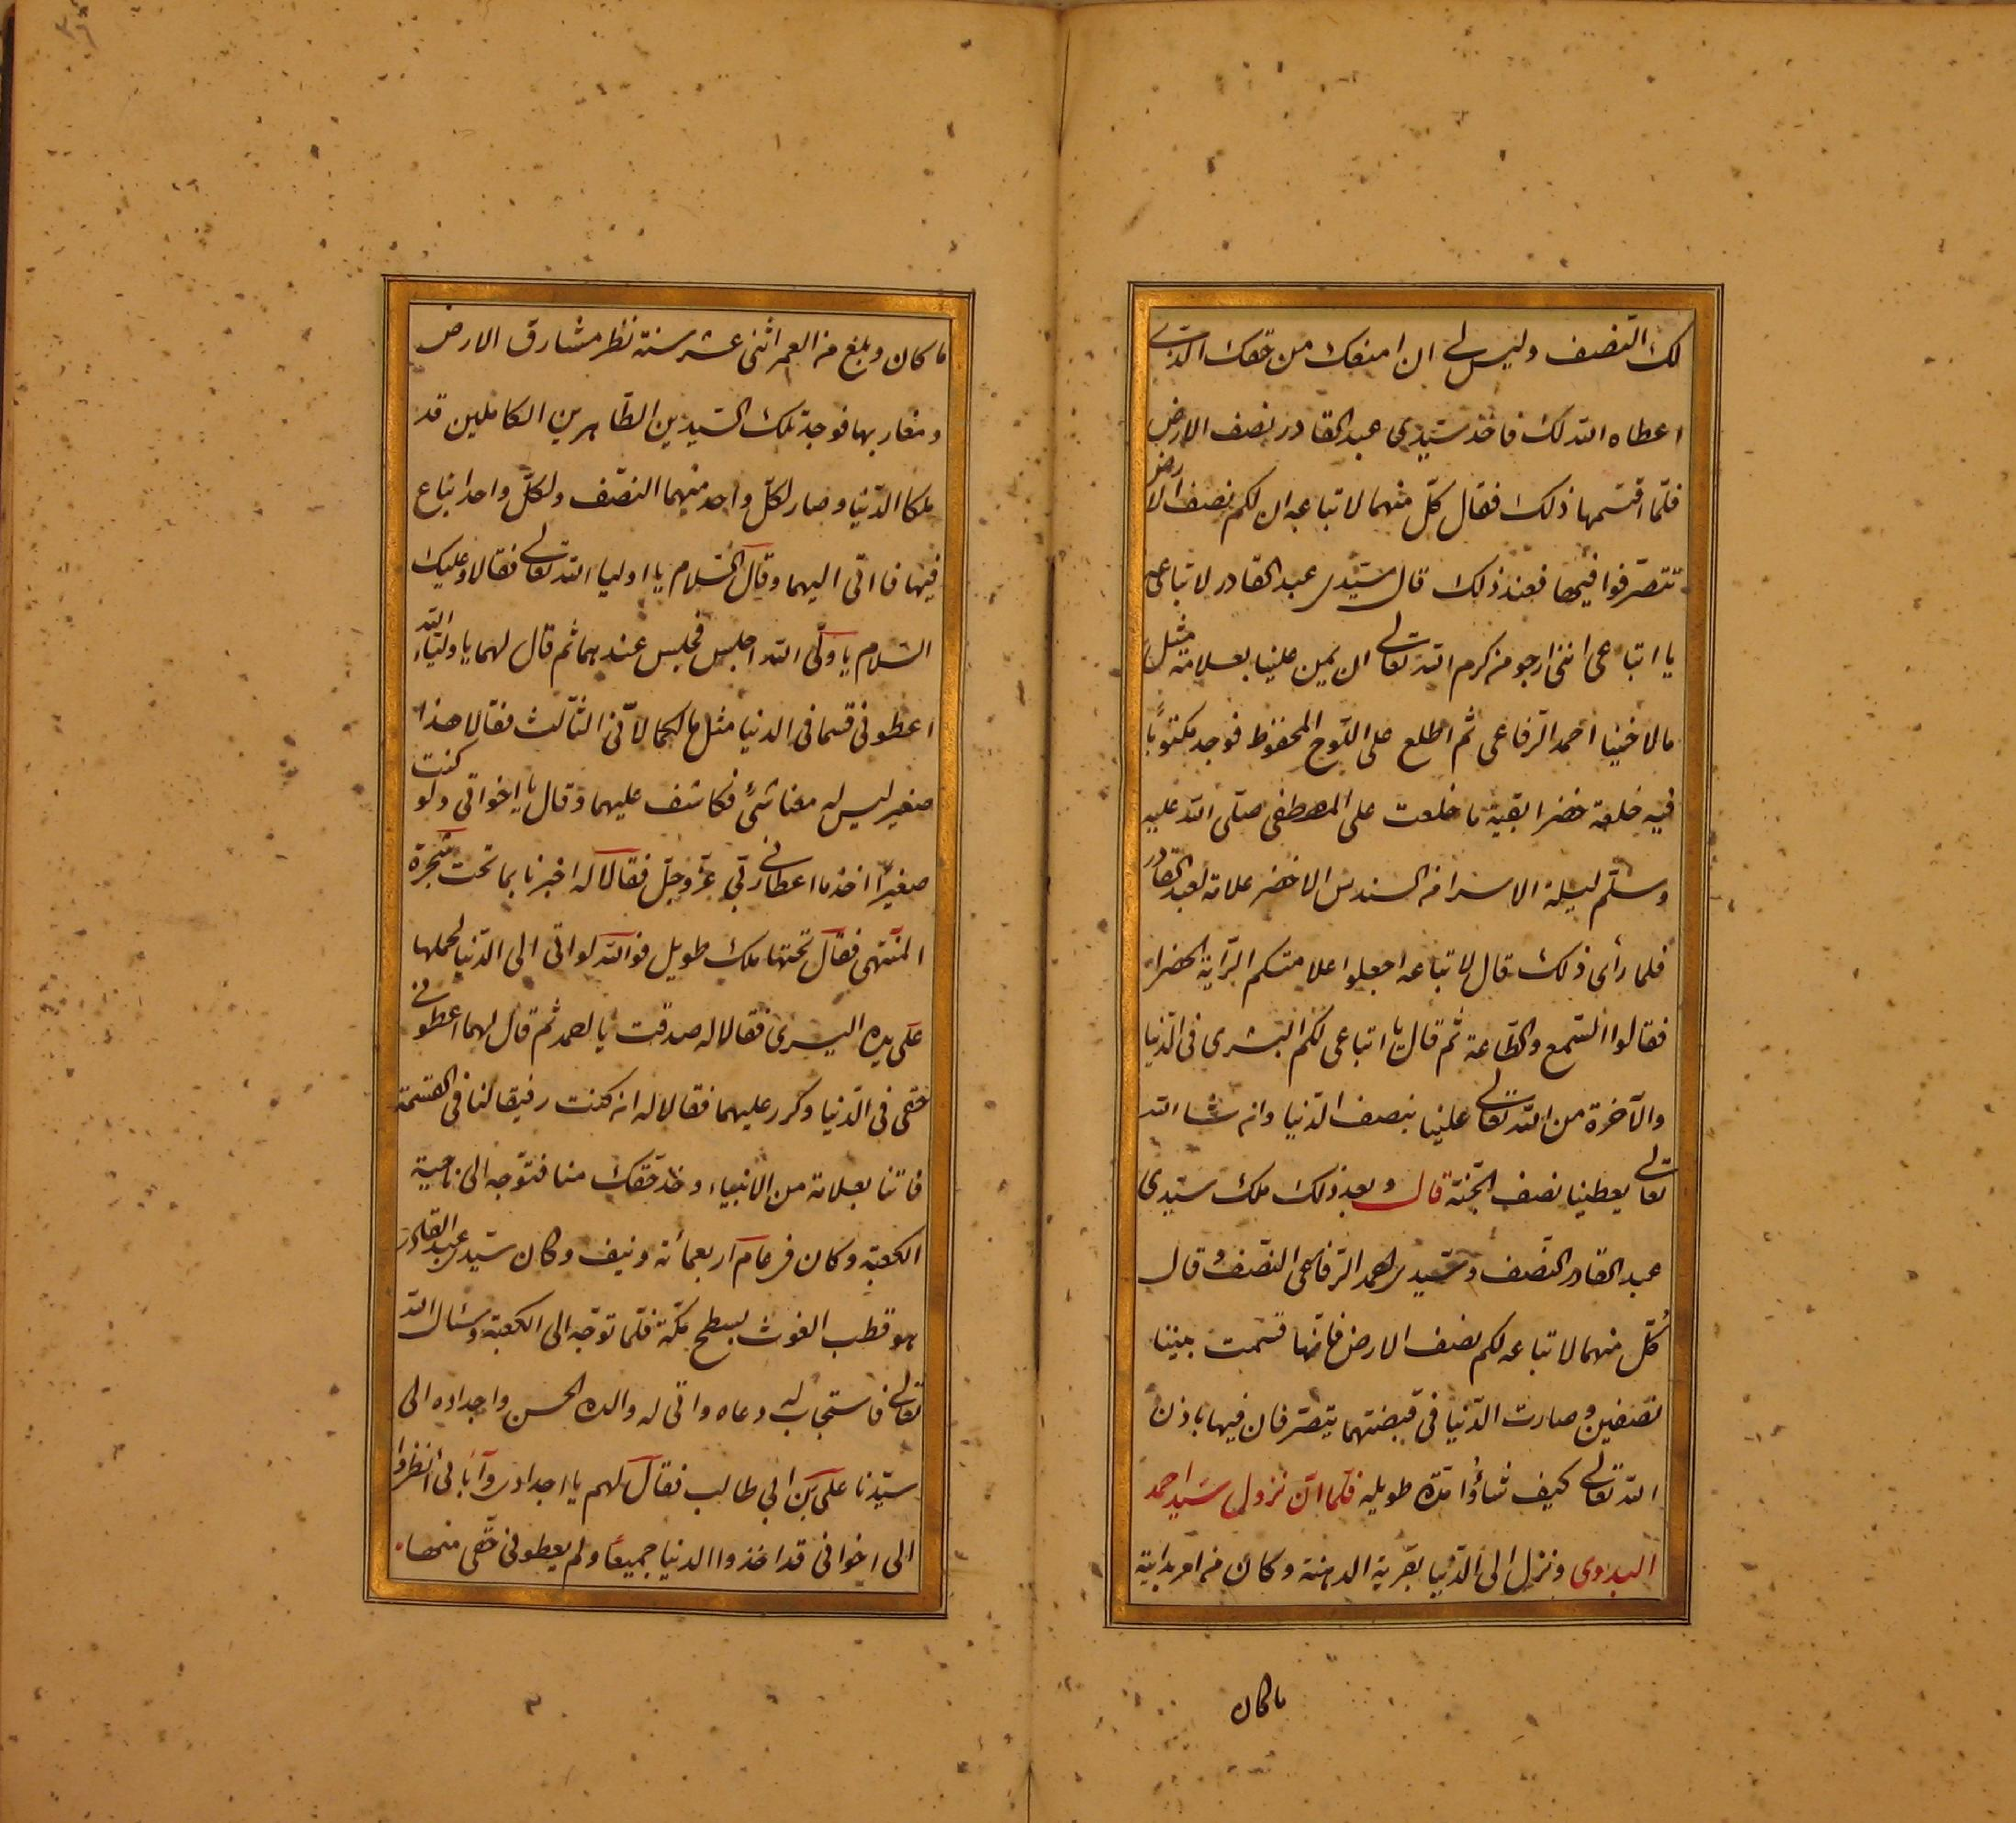 لك النّصف وليس لى ان امنعك من حقك الذى
اعطاه الله لك فاخذ سيّدى عبد القادر نصف الارض
فلمّا اقتسمها ذلك فقال كلّ منهما لاتباعه ان لكم نصف الارض
تتصرّفوا فيها فعند ذلك قال سيّدى عبد القادر لاتباعى
يا اتباعى اننى ارجو من كرم الله تعالى ان يمن علينا بعلامة مثل
ما لاخينا احمد الرّفاعى ثم اطلع على اللّوح المحفوظ فوجد مكتوبًا
فيه خلعة خضرا بقية ما خلعت على المصطفى صلّى الله عليه
وسلّم ليلة الاسرا من السندس الاخضر علامة لعبد القادر
فلما رأى ذلك قال لاتباعه اجعلوا علامتكم الرّاية الخضرا
فقالوا السّمع والطّاعة ثم قال يا اتباعى لكم البشرى فى الدّنيا
والآخرة من الله تعالى علينا بنصف الدّنيا وان شا الله
تعالى يعطينا نصف الجّنة قال وبعد ذلك ملك سيّدى
عبد القادر النّصف وسيّدى احمد الرّفاعى النّصف وقال
كلّ منهما لاتباعه لكم نصف الارض فانّها قسمت بيننا
نصفين وصارت الدّنيا فى قبضتهما يتصرّفان فيها باذن
الله تعالى كيف شاؤا مدّة طويله فلمّا انّ نزول سيّد احمد
البدوى ونزل الى الدّنيا بقرية الدهنة وكان من امر بداية
ما كان
ما كان وبلغ من العمر اثنى عشر سنة نظر مشارق الارض
ومغاربها فوجد تلك السّيدين الطّاهرين الكاملين قد
ملكا الدّنيا وصار لكلّ واحد منهما النصّف ولكلّ واحد اتباع
فيها فاتى اليهما وقال السّلام يا اوليا الله تعالى فقالا وعليك
السّلام يا ولّى الله اجلس فجلس عندهما ثم قال لهما يا اولياء الله
اعطونى قسما فى الدنيا مثل مالكما لانّى الثّالث فقالا هذا
صغير ليس له معنا شئ فكاشف عليهما وقال يا اخواتى ولو كنت
صغيرًا اخذ ما اعطانى ربّى عزّ وجلّ فقالا له اخبرنا بما تحت شجرة
المنتهى فقال تحتها ملك طويل فوالله لو اتى الى الدّنيا لحملها
على يده اليسرى فقالا له صدقت يا احمد ثم قال لهما اعطونى
حقى فى الدّنيا وكرر عليهما فقالا له ان كنت رفيقا لنا فى القسمة
فاتنا بعلامة من الانبياء وخذ حقّك منا فتوّجه الى ناحية
الكعبة وكان فى عام اربعمائة ونيف وكان سيّدى عبد القادر
هو قطب الغوث بسطح مكّة فلمّا توجّه الى الكعبة وسئال الله
تعالى فاستجاب له دعاه واتى له والده الحسن واجداده الى
سيّدنا على بن ابى طالب فقال لهم يا اجدادى وآبائى انظروا
الى اخوانى قد اخذوا الدنيا جميعًا ولم يعطونى حقّى منها